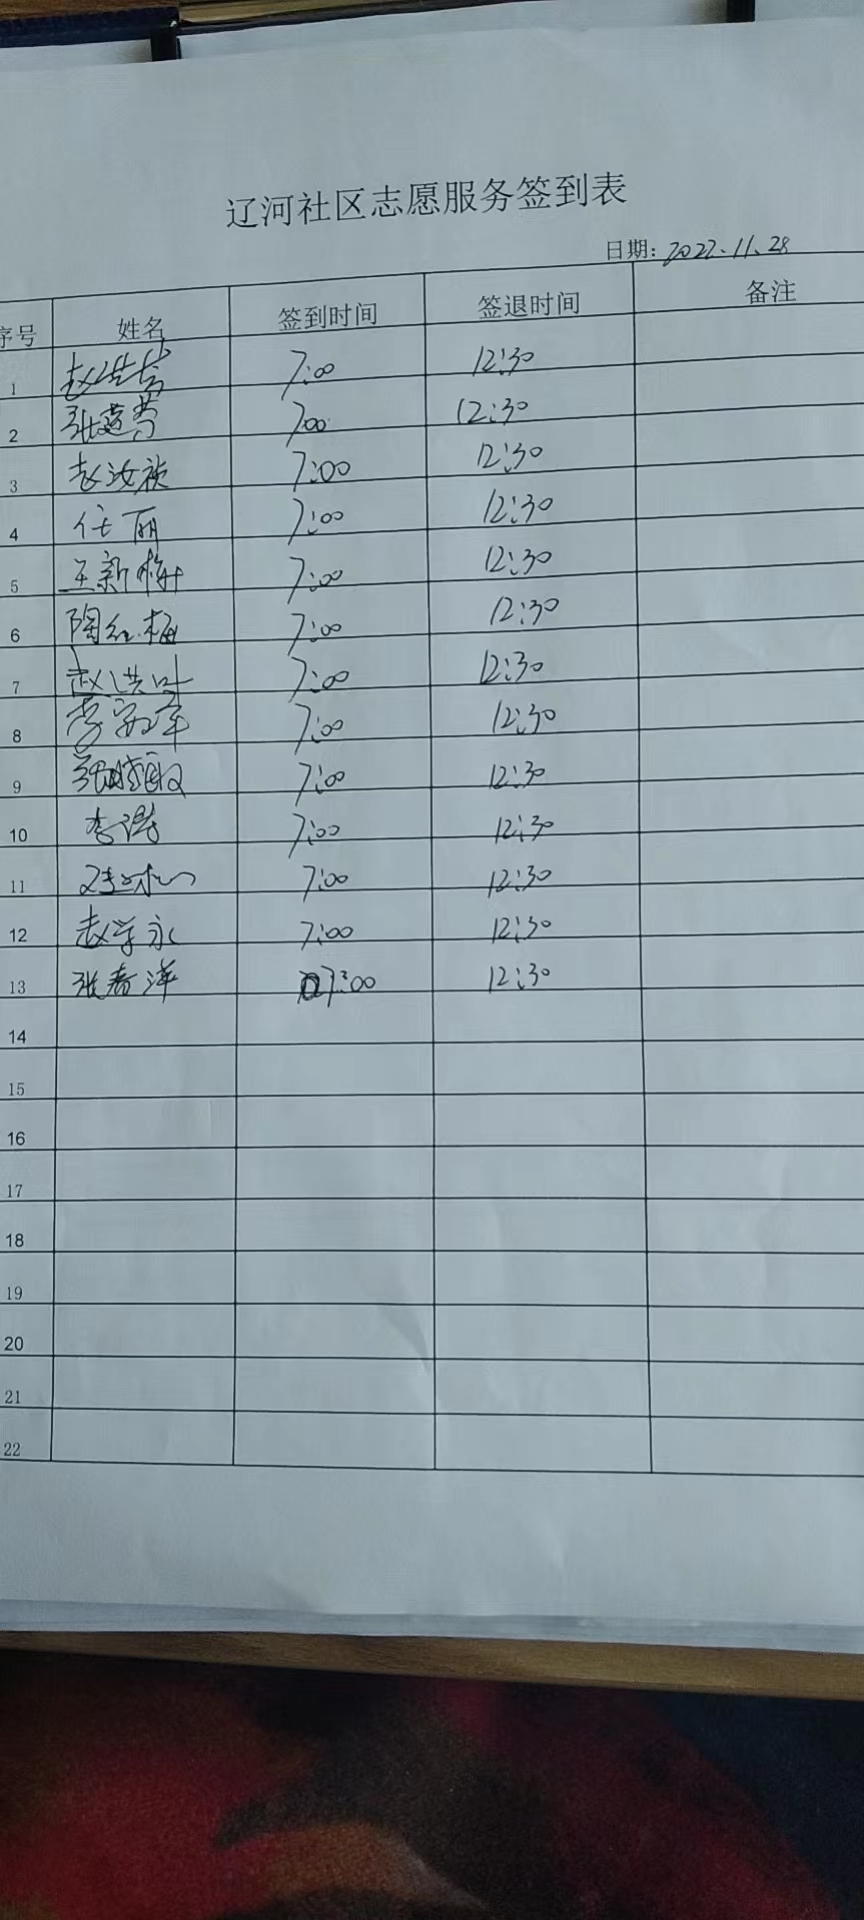 辽河社区志愿服务签到表
日期：2022.11.28
序号 姓名 签到时间 签退时间 备注
1 7:00 12:30
2 7:00 12:30
3 赵汝祯 7:00 12:30
4 任丽 7:00 12:30
5 王新梅 7:00 12:30
6 陶红梅 7:00 12:30
7 赵洪叶 7:00 12:30
8 7:00 12:30
9 7:00 12:30
10 7:00 12:30
11 7:00 12:30
12 赵学永 7:00 12:30
13 张春洋 7:00 12:30
14
15
16
17
18
19
20
21
22